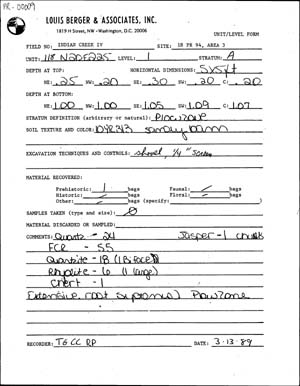 PR-00009
LOUIS BERGER & ASSOCIATES, INC.
1819 H Street, NW · Washington, D.C. 20006
UNIT/LEVEL FORM
FIELD NO: INDIAN CREEK IV SITE: 18 PR 94, AREA 3
UNIT: 118 N20E225 LEVEL: 1 STRATUM: A
DEPTH AT TOP: HORIZONTAL DIMENSIONS: 5x5ft
NE: .25 NW: .20 SE: .30 SW: .20 C: .20
DEPTH AT BOTTOM:
NE: 1.00 NW: 1.00 SE: 1.05 SW: 1.09 C: 1.07
STRATUM DEFINITION (arbitrary or natural): Plowzone
SOIL TEXTURE AND COLOR: 10YR3/3 sandy loam
EXCAVATION TECHNIQUES AND CONTROLS: shovel, 1/4" screen
MATERIAL RECOVERED:
Prehistoric: 1 bags Faunal: bags
Historic: bags Floral: bags
Other: bags (specify: )
SAMPLES TAKEN (type and size):
MATERIAL DISCARDED OR SAMPLED:
COMMENTS: Quartz - 241 Jasper - 1 chunk
FCR - 55
Quartzite - 18 (1 Biface)
Rhyolite - 6 (1 large)
Chert - 1
Extensive root Plowzone
RECORDER: TG CC RP DATE: 3-13-89